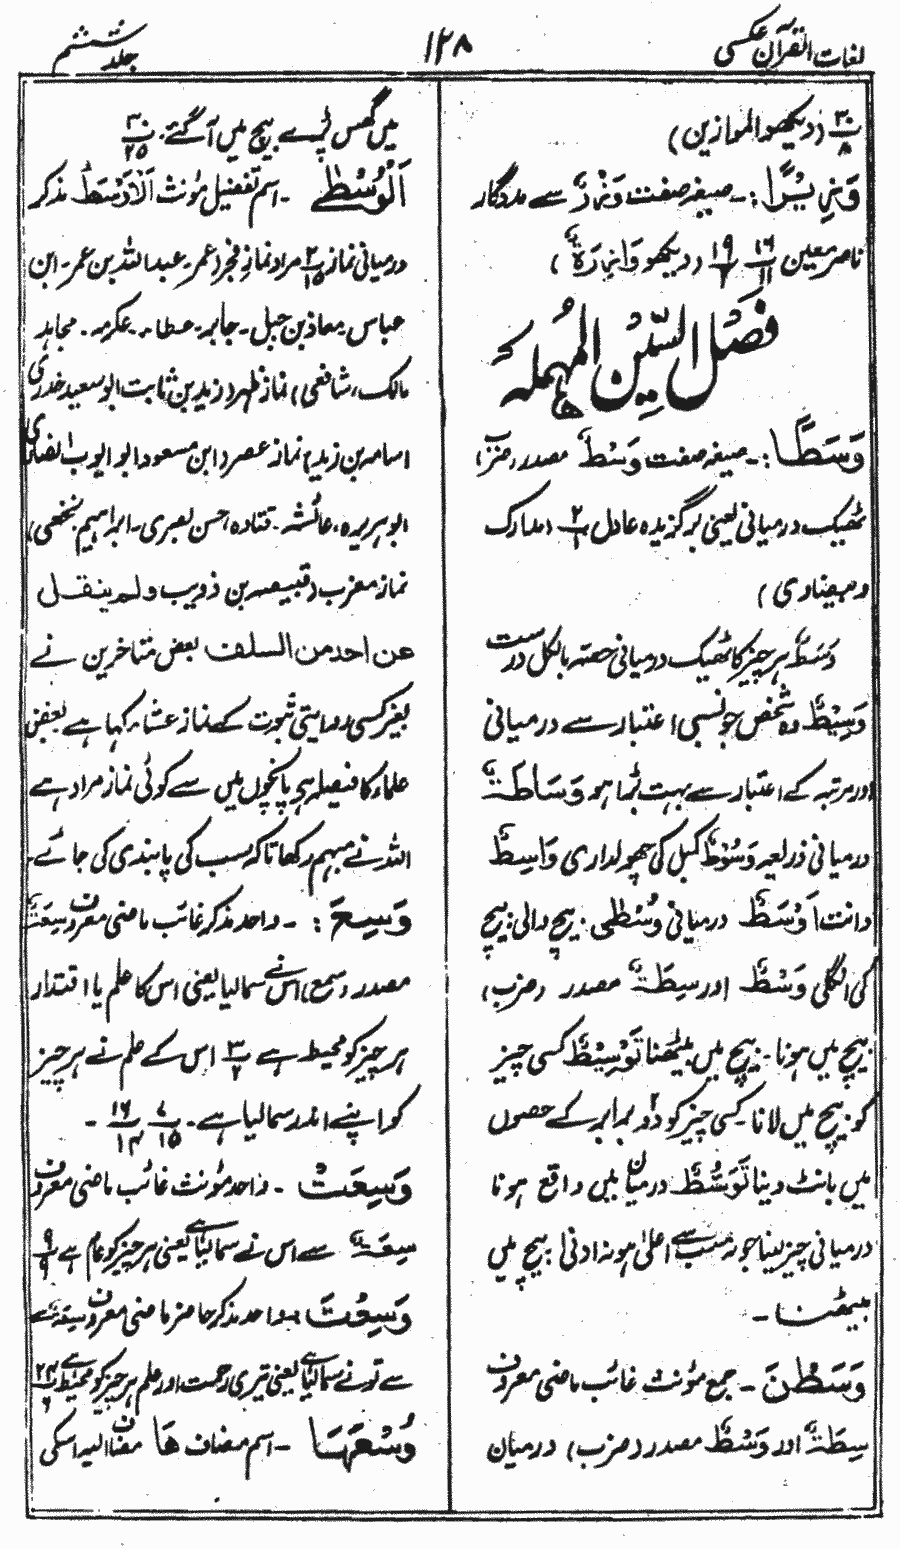 لغات القرآن عکسی
۱۲۸
جلد ششم
۳۰/۸ (دیکھو الموازین)
وَزِیْرًا :۔ صیغہ صفت وَزْرٌ سے مددگار
ناصر معین ۱۶/۱۱ ۱۹/۲ (دیکھو وَازِرَۃٌ)
فصل السّین المُہملہ
وَسَطًا :۔ صیغہ صفت وَسْطٌ مصدر (ضرب)
ٹھیک درمیانی یعنی برگزیدہ عادل ۲/۱ (مدارک
و بیضاوی)
وَسَطٌ ہر چیز کا ٹھیک درمیانی حصہ بالکل درست
وَسِیْطٌ وہ شخص جو نسبی اعتبار سے درمیانی
اور مرتبہ کے اعتبار سے بہت بڑا ہو وَسَاطَۃٌ
درمیانی ذریعہ وَسُوْطٌ کمبل کی چھولداری وَاسِطٌ
دانت اَوْسَطٌ درمیانی وُسْطٰی بیچ والی بیچ
کی انگلی وَسْطٌ اور سِطَۃٌ مصدر (ضرب)
بیچ میں ہونا۔ بیچ میں بیٹھنا تَوْسِیْطٌ کسی چیز
کو بیچ میں لانا۔ کسی چیز کو دو برابر کے حصوں
میں بانٹ دینا تَوَسُّطٌ درمیان میں واقع ہونا
درمیانی چیز لینا جو نہ سب سے اعلیٰ ہو نہ ادنیٰ بیچ میں
بیٹھنا۔
وَسَطْنَ ۔ جمع مؤنث غائب ماضی معروف
سِطَۃٌ اور وَسْطٌ مصدر (ضرب) درمیان
میں گھس پڑے بیچ میں آ گئے۔ ۳۰/۲۵
اَلْوُسْطٰی ۔ اسم تفضیل مؤنث اَلْاَوْسَطُ مذکر
درمیانی نماز ۲/۱۵ مراد نماز فجر (عمر۔ عبداللہ بن عمر۔ ابن
عباس۔ معاذ بن جبل۔ جابر۔ عطاء۔ عکرمہ۔ مجاہد
مالک، شافعی) نماز ظہر (زید بن ثابت ابو سعید خدری
اسامہ بن زید) نماز عصر (ابن مسعود ابو ایوب انصاری
ابو ہریرہ، عائشہ۔ قتادہ، حسن بصری۔ ابراہیم نخعی)
نماز مغرب (قبیصہ بن ذویب ولم ینقل
عن احد من السلف بعض متأخرین نے
بغیر کسی روایتی ثبوت کے نماز عشاء کہا ہے بعض
علماء کا فیصلہ ہے پانچوں میں سے کوئی نماز مراد ہے
اللہ نے مبہم رکھا تاکہ سب کی پابندی کی جائے۔
وَسِعَ :۔ واحد مذکر غائب ماضی معروف سِعَۃٌ
مصدر (سمع) اس نے سمالیا یعنی اس کا علم یا اقتدار
ہر چیز کو محیط ہے ۳/۲ اس کے علم نے ہر چیز
کو اپنے اندر سمالیا ہے۔ ۷/۱۵ ۱۶/۱۴ ۔
وَسِعَتْ ۔ واحد مؤنث غائب ماضی معروف
سِعَۃٌ سے اس نے سمالیا ہے یعنی ہر چیز کو عام ہے ۹/۹
وَسِعْتَ :۔ واحد مذکر حاضر ماضی معروف سِعَۃٌ
سے تو نے سمالیا ہے یعنی تیری رحمت اور علم ہر چیز کو محیط ہے ۲۴/۶
وُسْعَہَا ۔ اسم مضاف ھَا مضاف الیہ اسکی